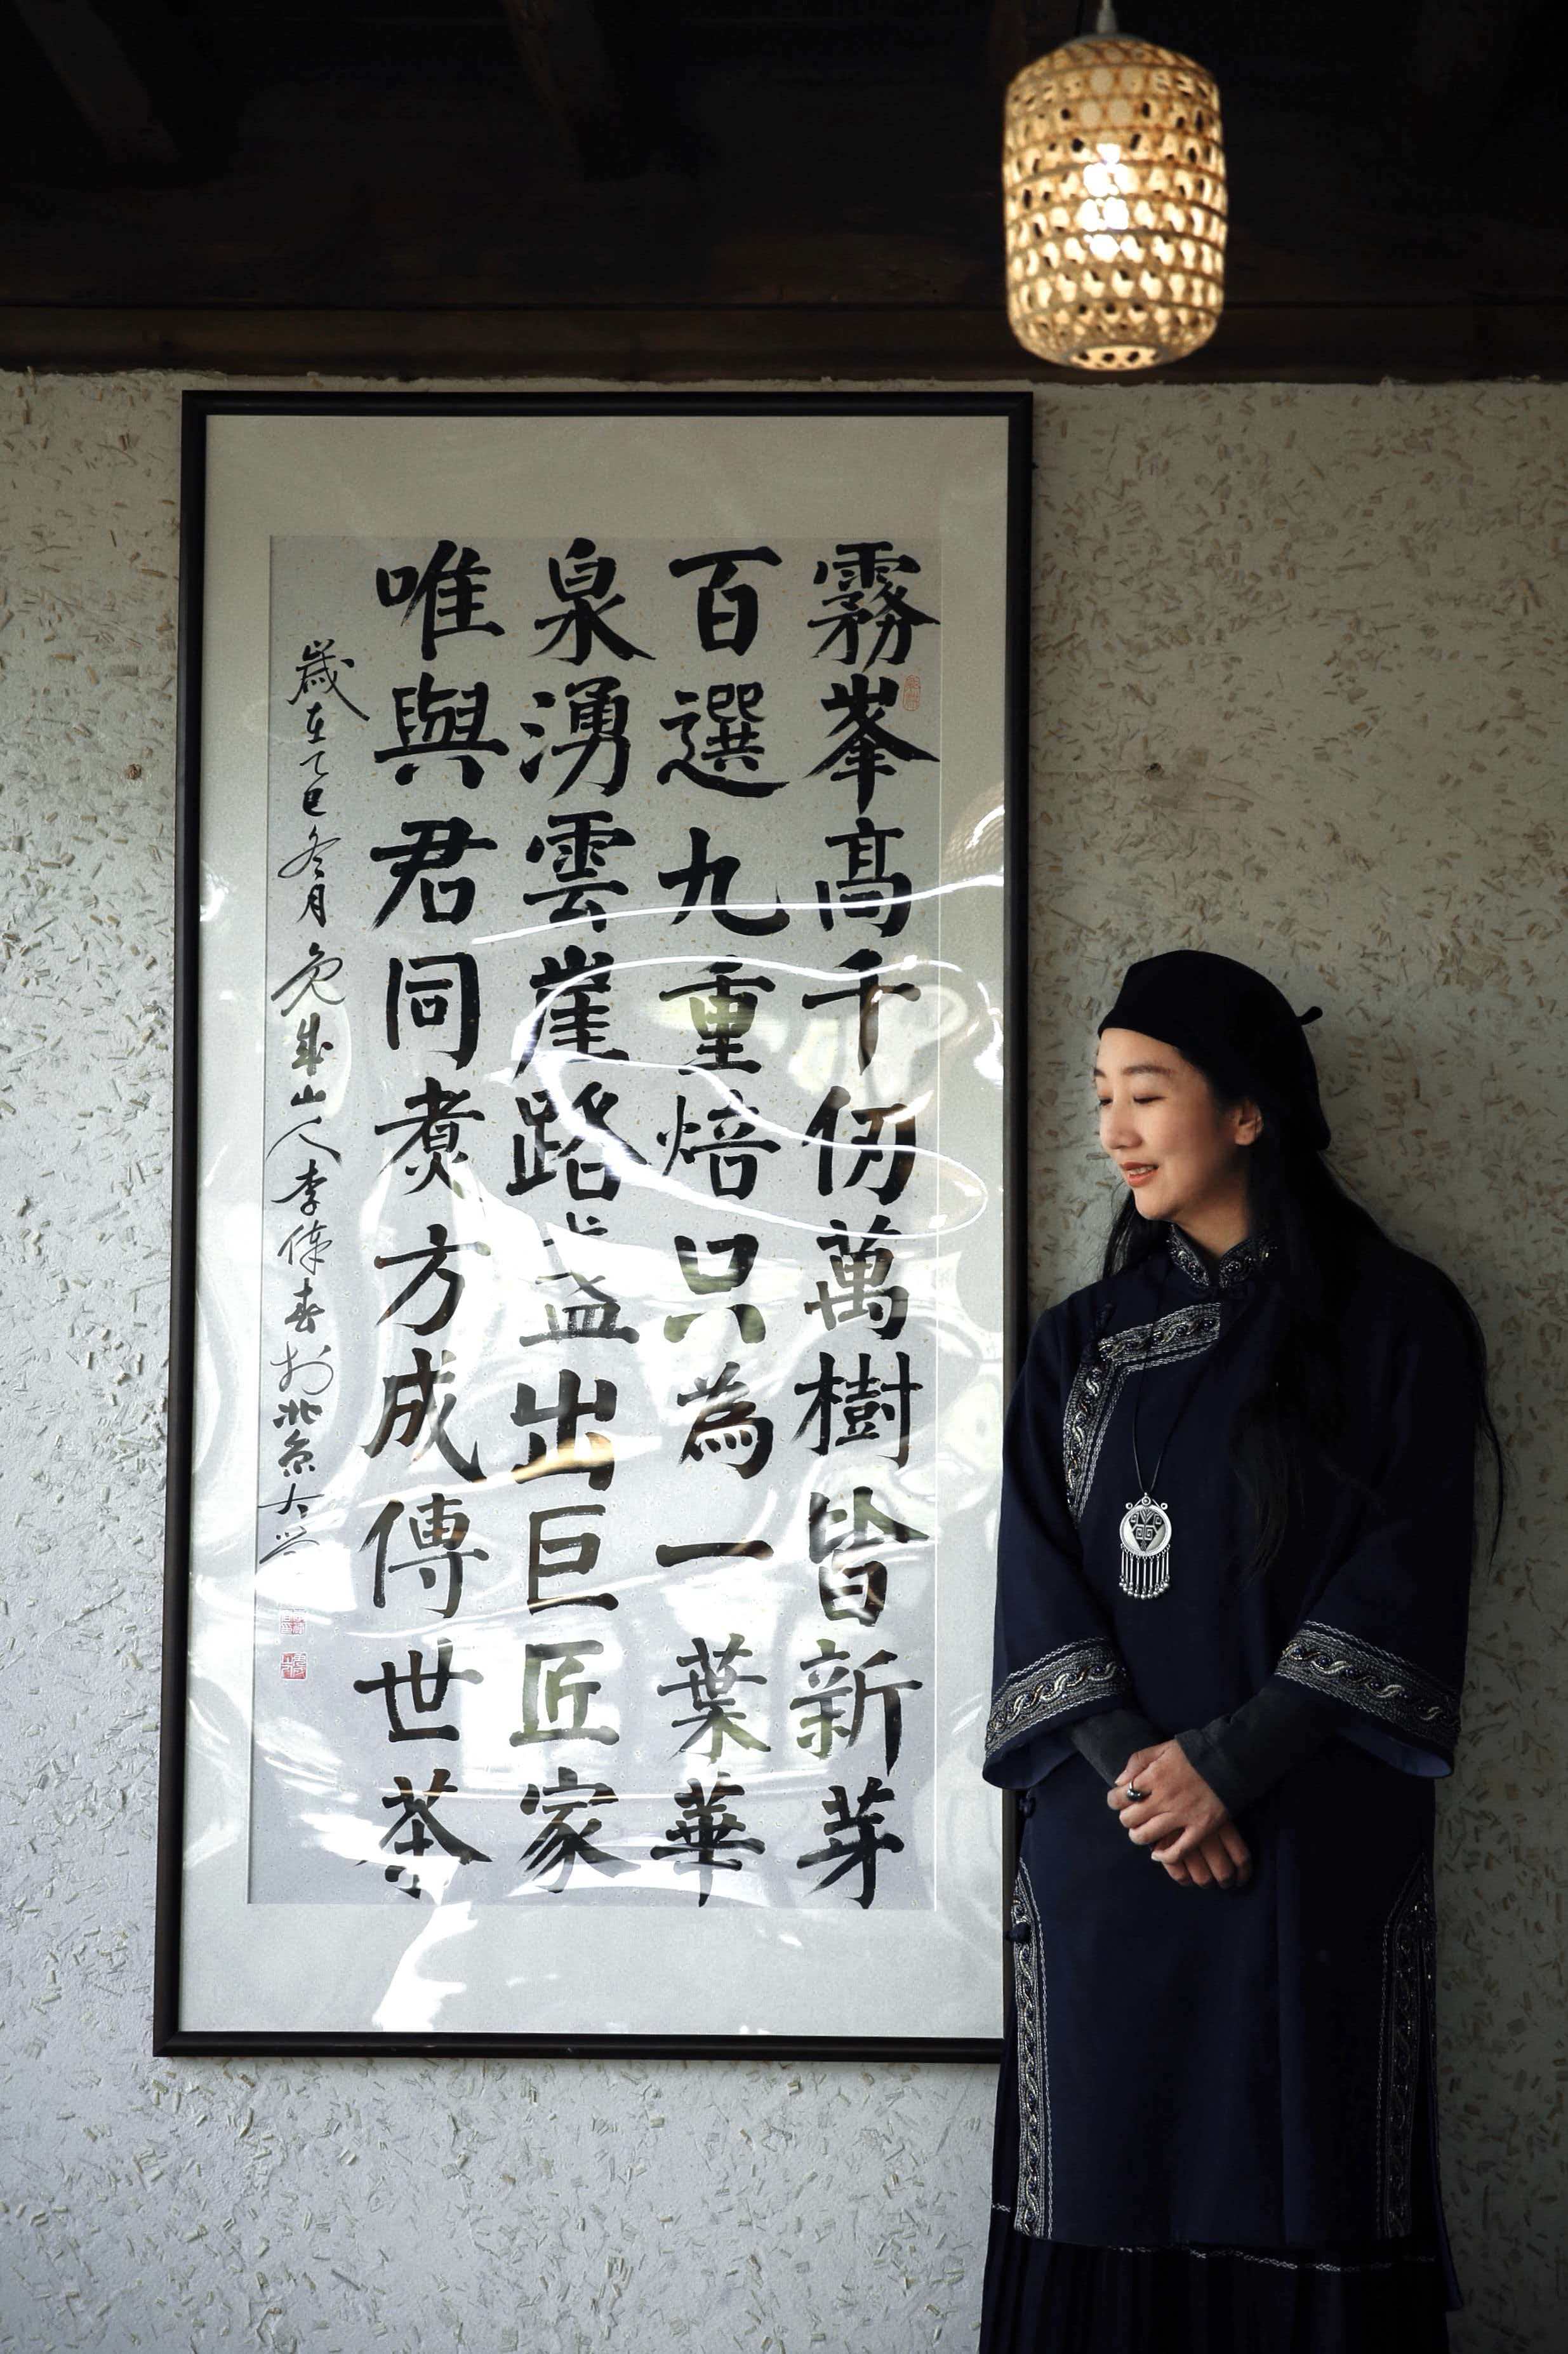 霧峯高千仞萬樹皆新芽
百選九重焙只為一葉華
泉湧雲崖路盞出巨匠家
唯與君同煮方成傳世茶
歲在乙巳冬月山人李春於北京大興